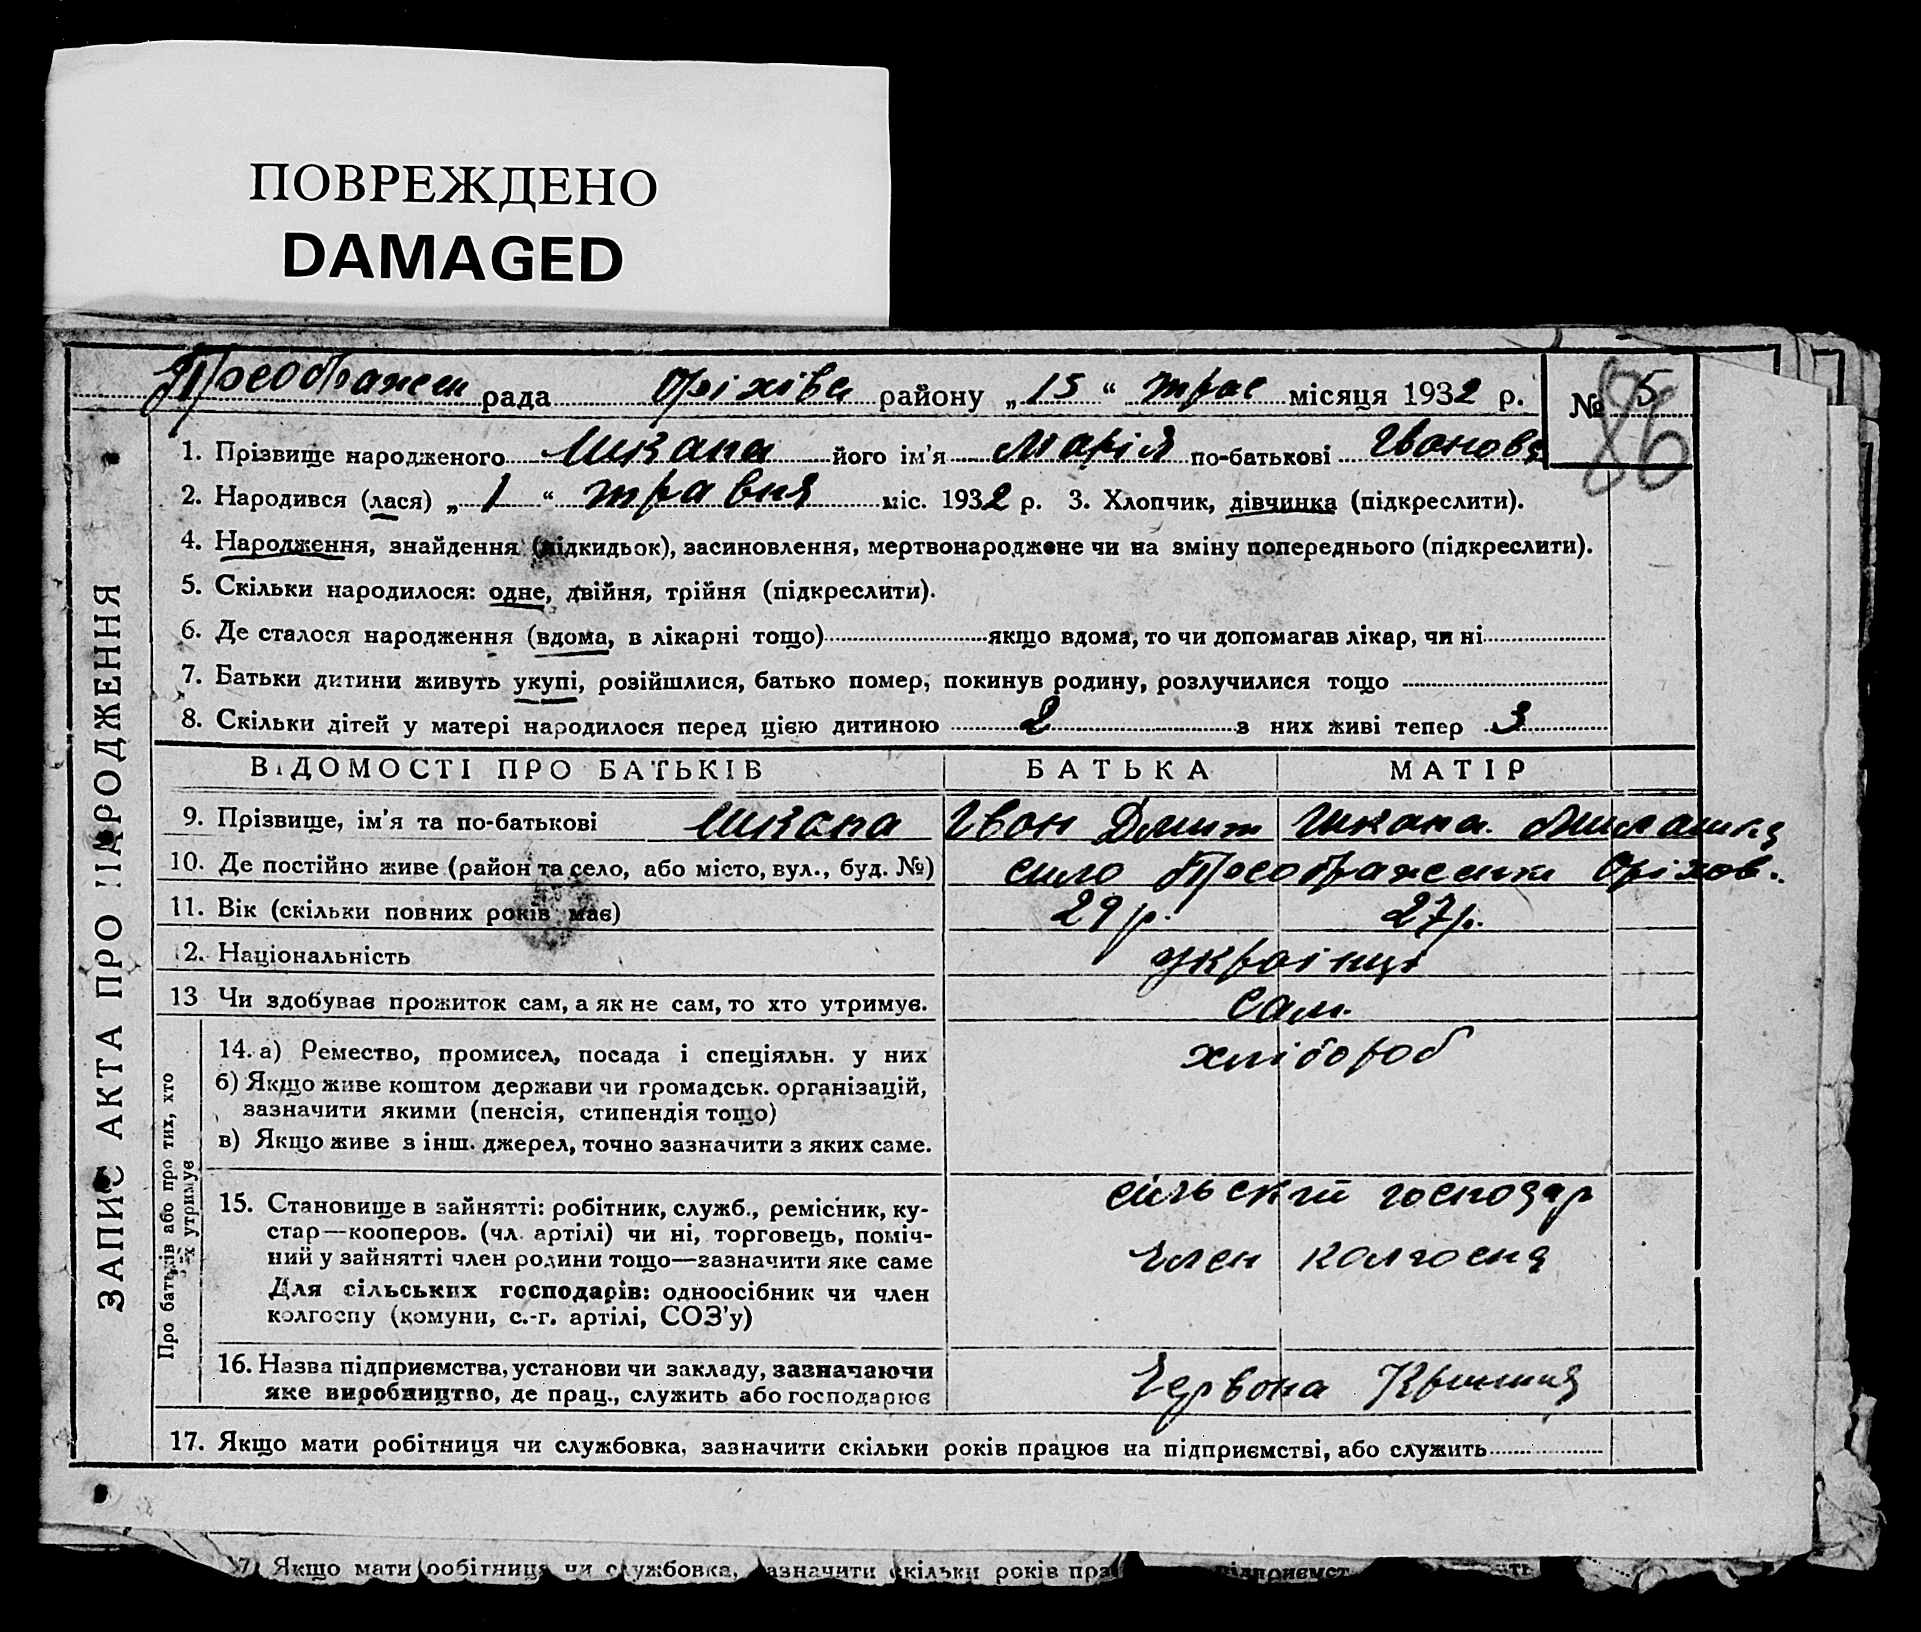 ПОВРЕЖДЕНО
DAMAGED
Преображен рада Оріхівс району „ 15 “ трав місяця 1932 р. № 5
86
1. Прізвище народженого Шкапа його ім'я Марія по-батькові Івановa
2. Народився (лася) „ 1 “ травня міс. 1932 р. 3. Хлопчик, дівчинка (підкреслити).
4. Народження, знайдення (підкидьок), засиновлення, мертвонароджене чи на зміну попереднього (підкреслити).
5. Скільки народилося: одне, двійня, трійня (підкреслити).
6. Де сталося народження (вдома, в лікарні тощо) якщо вдома, то чи допомагав лікар, чи ні
7. Батьки дитини живуть укупі, розійшлися, батько помер, покинув родину, розлучилися тощо
8. Скільки дітей у матері народилося перед цією дитиною 2 з них живі тепер 3
ВІДОМОСТІ ПРО БАТЬКІВ БАТЬКА МАТІР
9. Прізвище, ім'я та по-батькові Шкапа Іван Дмит Шкапа
10. Де постійно живе (район та село, або місто, вул., буд. №) село Преображенка Оріхов.
11. Вік (скільки повних років має) 29 р. 27 р.
12. Національність українці
13 Чи здобував прожиток сам, а як не сам, то хто утримує. Сам.
14. а) Ремество, промисел, посада і спеціяльн. у них хлібороб
б) Якщо живе коштом держави чи громадськ. організацій,
зазначити якими (пенсія, стипендія тощо)
в) Якщо живе з інш. джерел, точно зазначити з яких саме.
15. Становище в зайнятті: робітник, служб., ремісник, ку-
стар—кооперов. (чл. артілі) чи ні, торговець, поміч-
ний у зайнятті член родини тощо—зазначити яке саме
Для сільських господарів: одноосібник чи член
колгоспу (комуни, с.-г. артілі, СОЗ'у)
сільский господар
член колгоспа
16. Назва підприємства, установи чи закладу, зазначаючи
яке виробництво, де прац., служить або господарює
Червона
17. Якщо мати робітниця чи службовка, зазначити скільки років працює на підприємстві, або служить
ЗАПИС АКТА ПРО НАРОДЖЕННЯ
Про батьків або про тих, хто
їх утримує
7 Якщо мати робітниця чи службовка, зазначити скільки років пра